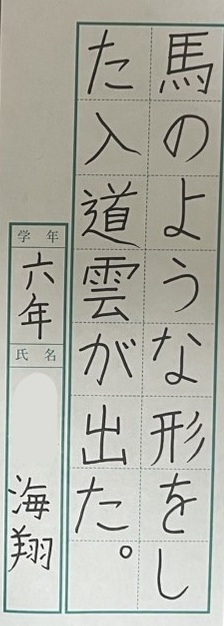 馬のような形をし
た入道雲が出た。
学年
六年
氏名
海翔